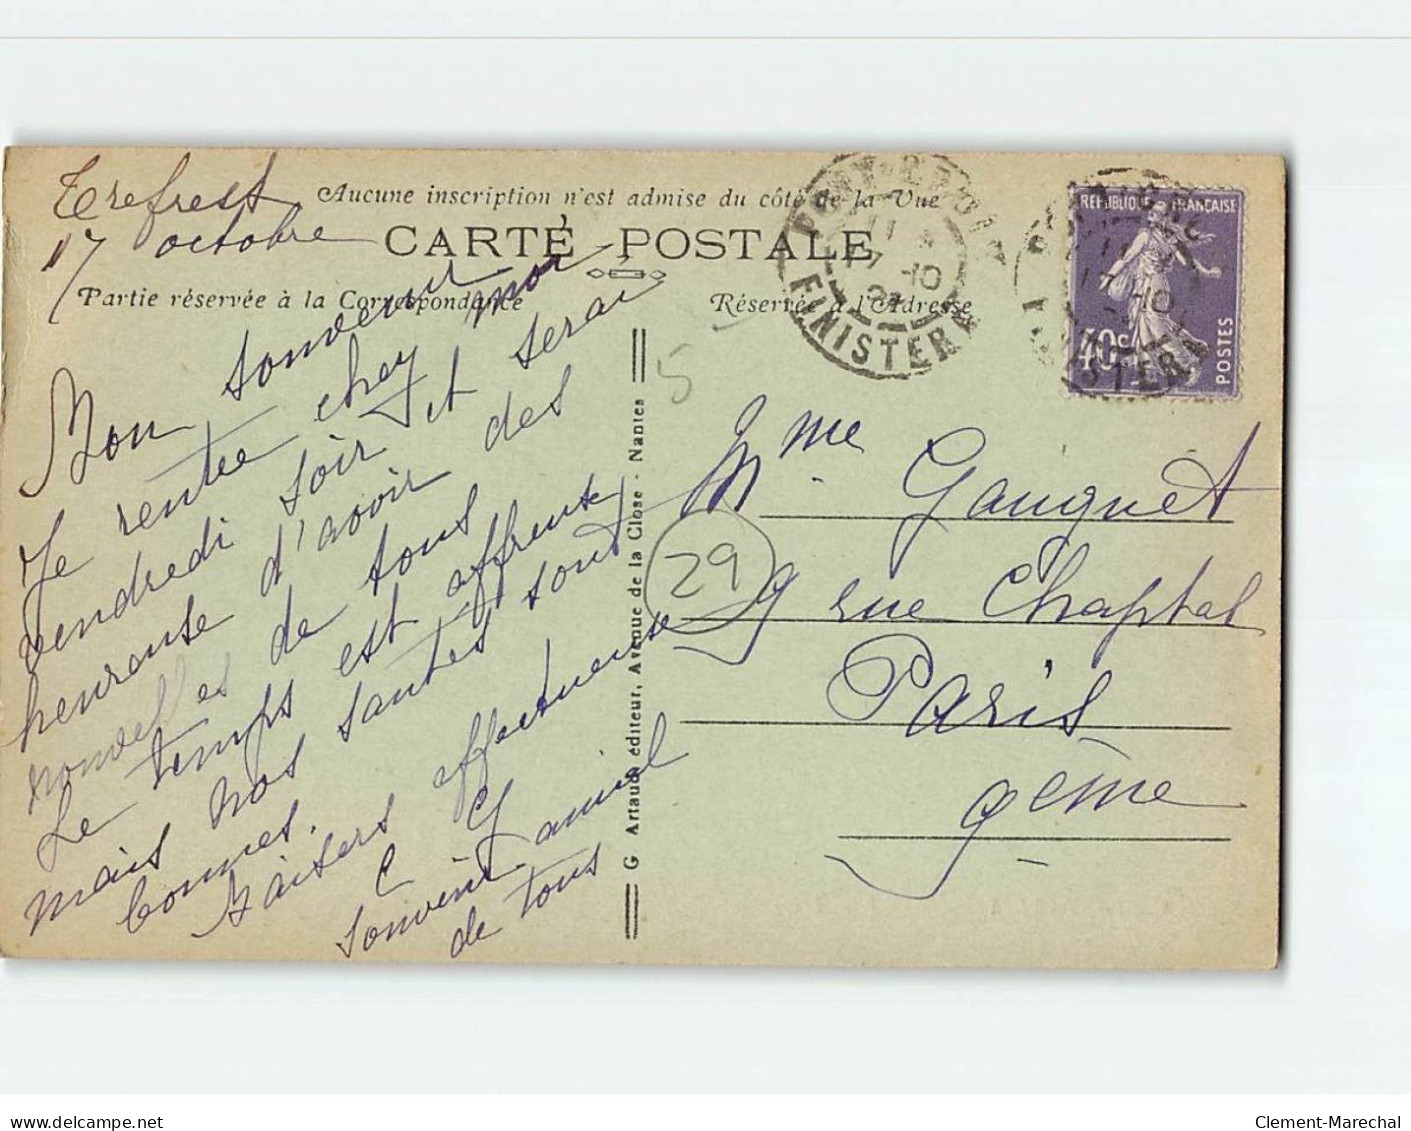 Trefrest
17 octobre
Aucune inscription n'est admise du côté de la Vue
CARTE POSTALE
Partie réservée à la Correspondance
Réservée à l'Adresse
Bon souvenir
Je rentre chez moi
vendredi soir et serai
heureuse d'avoir des
nouvelles de tous
Le temps est affreux
mais nos santés sont
bonnes.
Baisers affectueuse
souvenir amical
de tous
G Artaud éditeur, Avenue de la Close - Nantes
5
29
FINISTERE
17 -10
RÉPUBLIQUE FRANÇAISE
40c
POSTES
Mme Gauguet
9 rue Chaptal
Paris
9eme
www.delcampe.net
Clement-Marechal